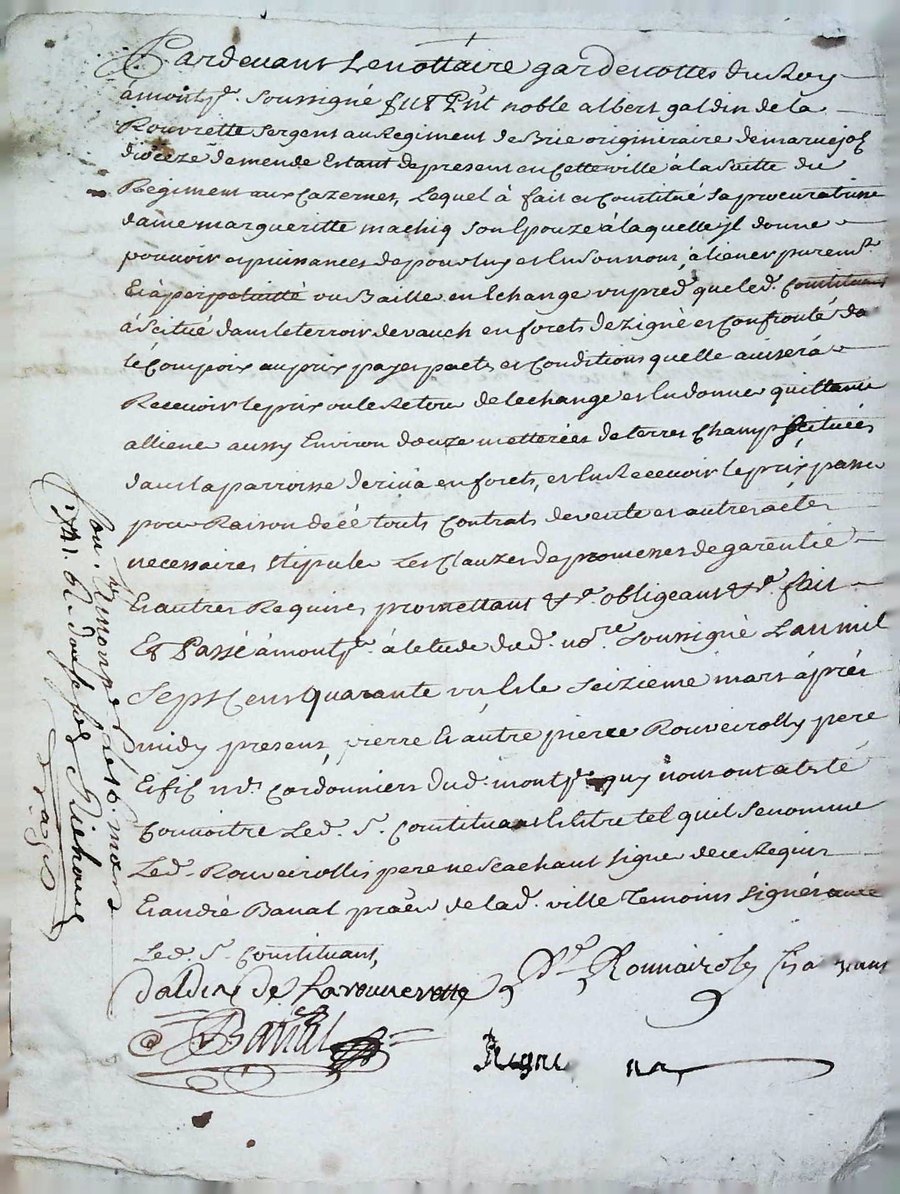 Pardevant Le nottaire gardenottes du Roy
à montp^er. soussigné fut p^nt noble albert galdin de la
Rouvrette sergent au Regiment de Brie originaire de maruejol
dioceze de mende Estant de present en cette ville à la suitte du
Regiment aux cazernes, Lequel à fait et constitué sa procuratrisse
dame margueritte machiq son Epouze à laquelle jl donne
pouvoir et puissances de pour luy et en son nom, aliener purem^t.
Et à perpetuitté ou Baille en Echange un pred que led. Constituant
à scitué dans le terroir de vauch en forets dezigné et confronté da
le compoix au prix payes pacts et conditions quelle avisera
Recevoir le prix ou le Retour de lechange et en donner quittance
alliene aussy Environ douze metterées de terres champ scituées
dans la parroisse de en forets, et en Recevoir le prix, passer
pour Raison de cé touts contrats de vente et autres actes
necessaires stipuler Les clauzes de promesses de garentie
Et autres Requises, promettant &^a. obligeant &^a. fait
Et Passé à montp^er à letude dud. no^re soussigné Lan mil
sept cent quarante un Et le seizieme mars après
midy present, pierre Et autre pierre Rouveirolly pere
Et fils m^es. cordonniers dud. montp^er quy nous ont atesté
connoitre Led. s^r. constituant Estre tel quil se nomme
Led. Rouveirollis pere ne scachant signer de ce Requis
Et andré Banal prat^en de lad. ville Temoins signés avec
Led. s^r. constituant,
Galdin de Larouverette
P^re Rouvairoly
Banal
Regne
le 16. mars